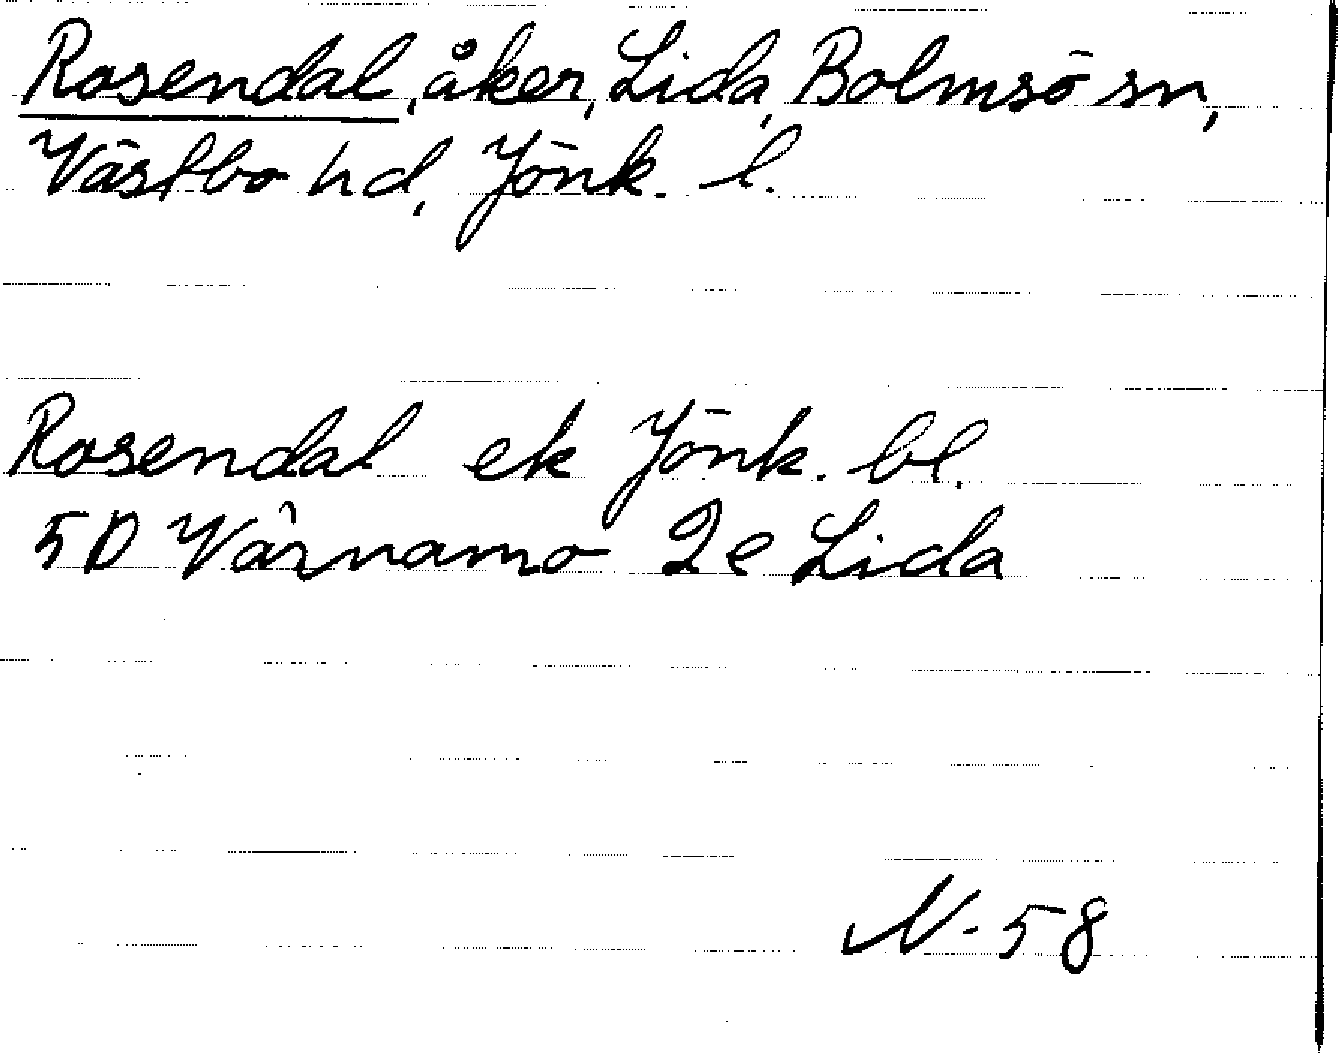 Rosendal, åker, Lida, Bolmsö sn,
Västbo hd, Jönk. l.
Rosendal ek Jönk. bl.
5D Värnamo 2e Lida
N-58